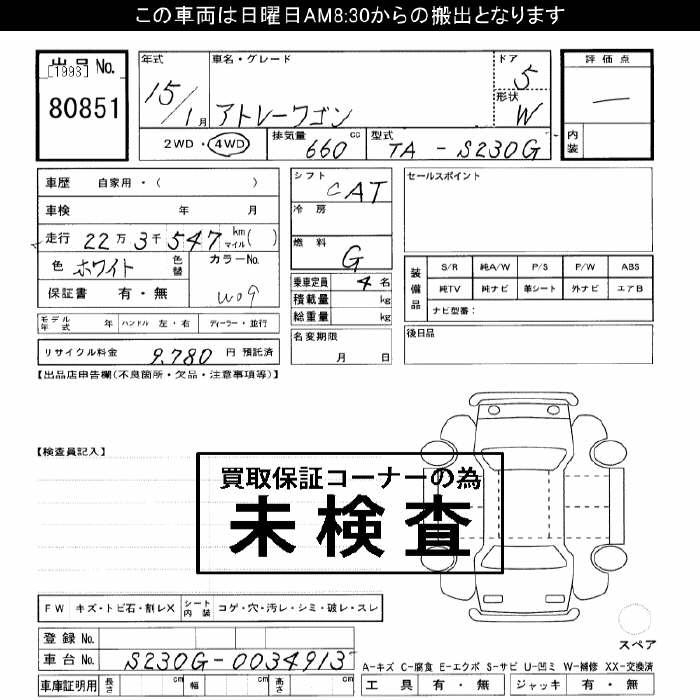 この車両は日曜日AM8:30からの搬出となります
出品No. [1993] 80851
年式 15/1月
車名・グレード アトレーワゴン
ドア 5
形状 W
2WD・4WD
排気量 660 cc
型式 TA - S230G
評価点 —
内装
車歴 自家用・( )
車検 年 月
走行 22万3千547 km マイル ( )
色 ホワイト 色替
カラーNo. W09
保証書 有・無
シフト CAT
冷房
燃料 G
乗車定員 4名
積載量 kg
総重量 kg
名変期限 月 日
セールスポイント
装備品
S/R 純A/W P/S P/W ABS
純TV 純ナビ 革シート 外ナビ エアB
ナビ型番:
後日品
モデル年式 年 ハンドル 左・右 ディーラー・並行
リサイクル料金 9,780 円 預託済
【出品店申告欄(不良箇所・欠品・注意事項等)】
【検査員記入】
買取保証コーナーの為
未検査
FW キズ・トビ石・割レX シート内装 コゲ・穴・汚レ・シミ・破レ・スレ
登録No.
車台No. S230G-0034913
車庫証明用 長さ cm 幅 cm 高さ cm
スペア
A-キズ C-腐食 E-エクボ S-サビ U-凹ミ W-補修 XX-交換済
工具 有・無 ジャッキ 有・無